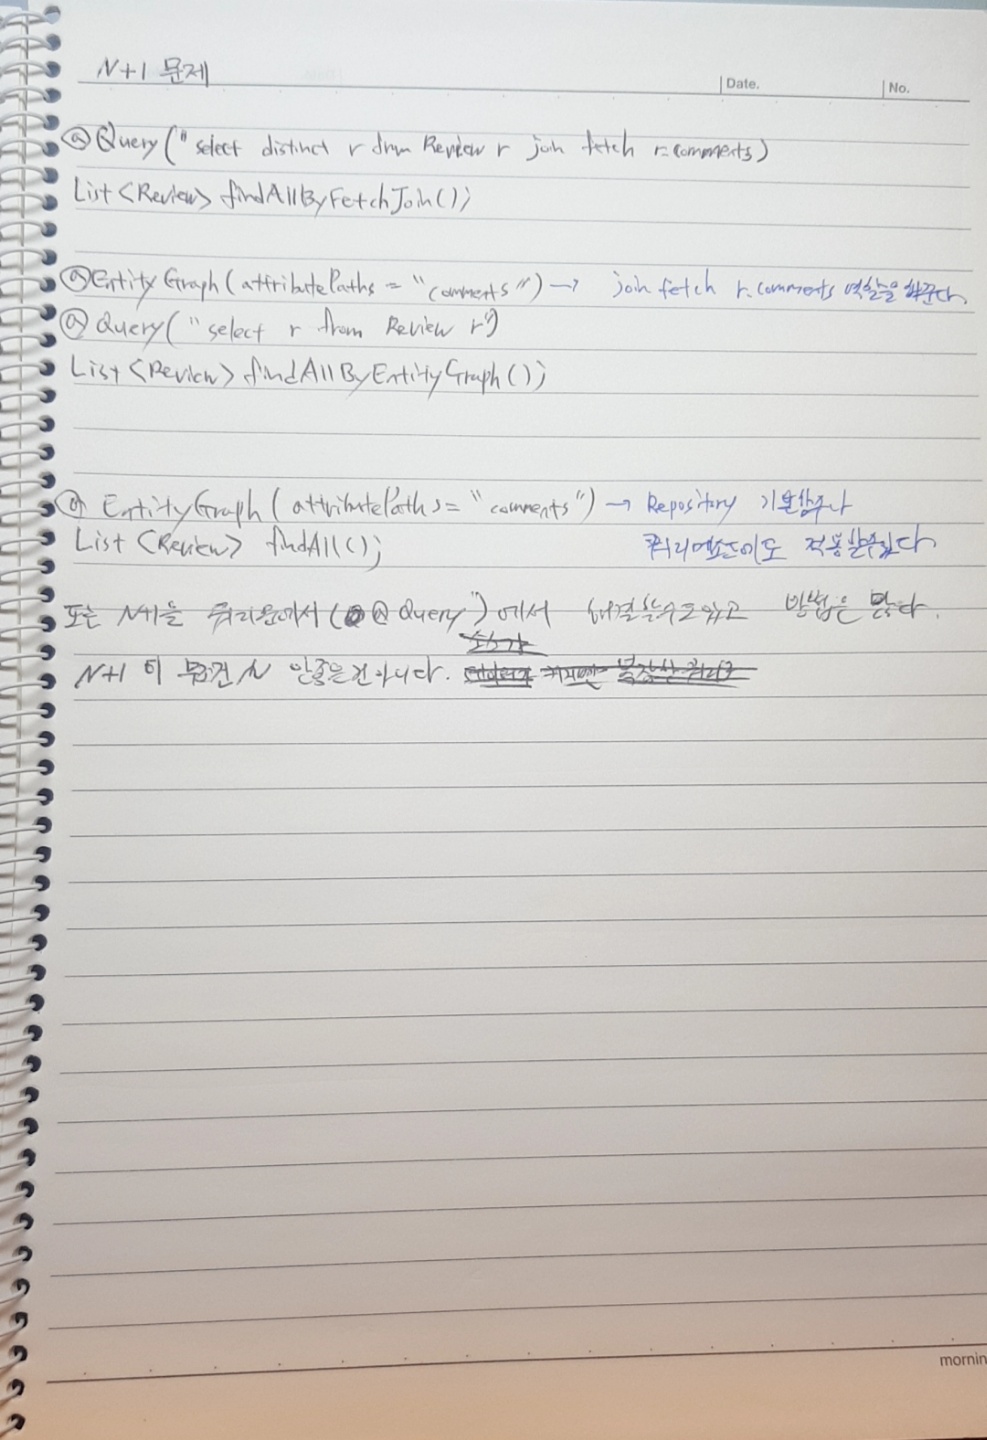 N+1 문제
Date.
No.
@Query("select distinct r from Review r join fetch r.comments)
List<Review> findAllByFetchJoin();
@EntityGraph(attributePaths = "comments") → join fetch r.comments 역할을 해준다.
@Query("select r from Review r")
List<Review> findAllByEntityGraph();
@EntityGraph(attributePaths = "comments") → Repository 기본함수나
List<Review> findAll(); 쿼리메소드에도 적용할수있다.
또는 N+1을 쿼리문에서(@Query")에서 해결할수도있고 방법은 많다.
N+1 이 무조건 안좋은건아니다.
mornin